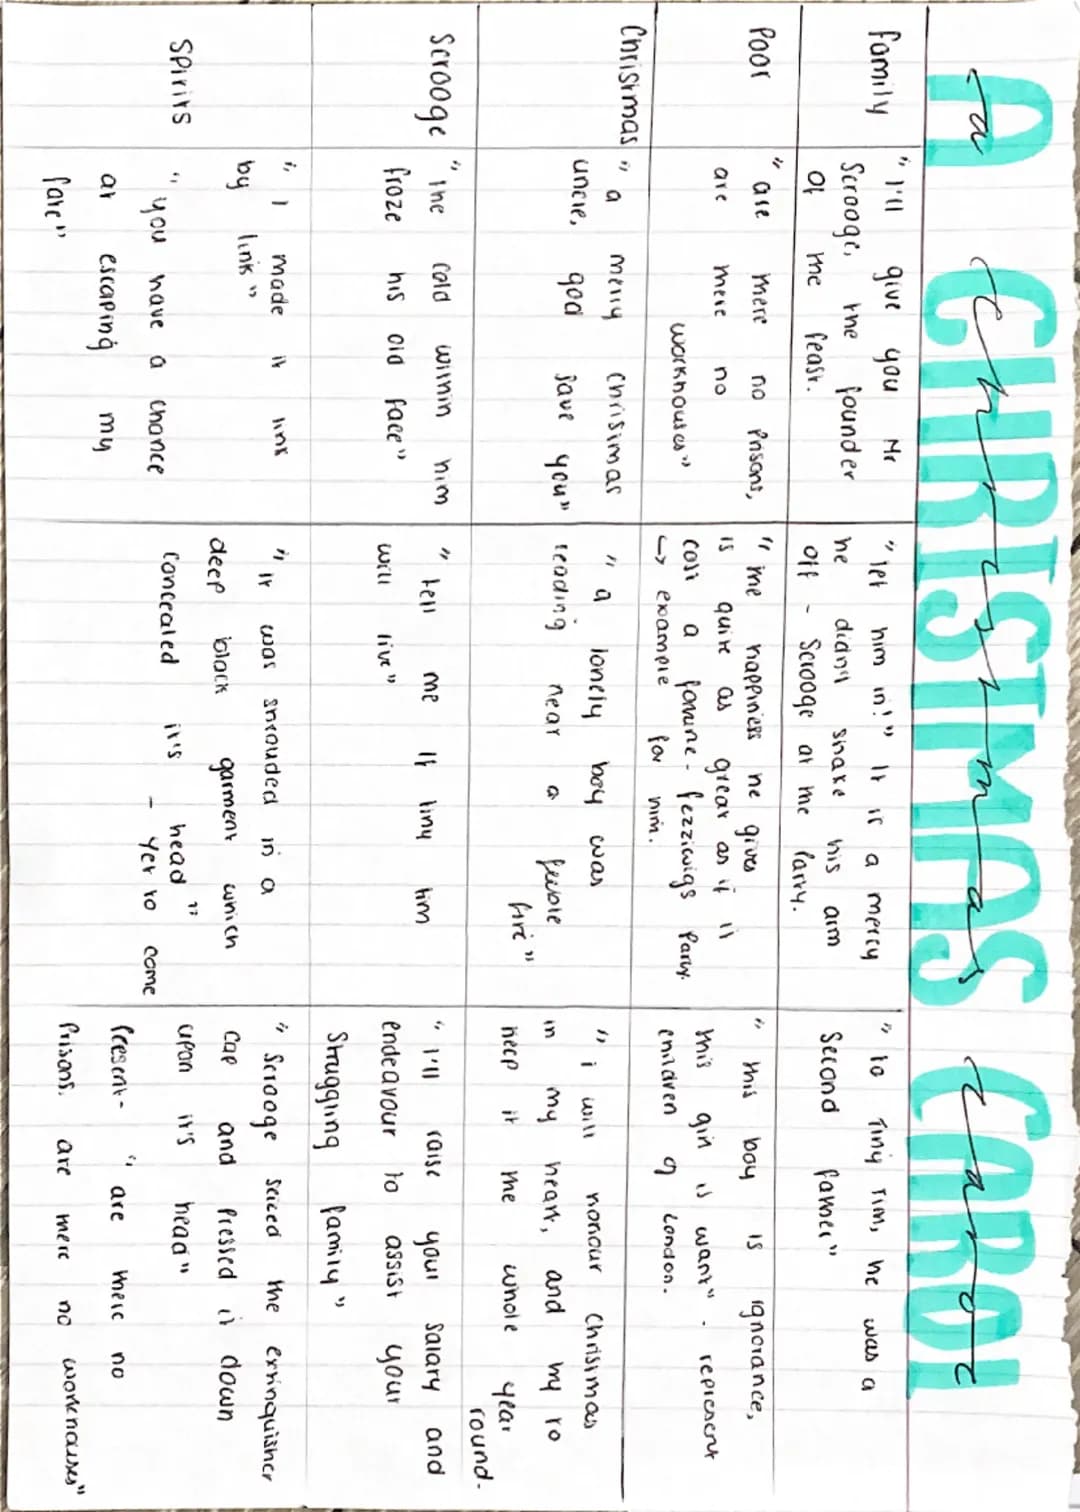 A CHRISTMAS CAROL
a christmas carol
Family
"I'll give you Mr
Scrooge, the founder
of the feast.
"let him in!" It is a mercy
he didn't shake his arm
off - Scrooge at the party.
"to Tiny Tim, he was a
Second father"
Poor
"are there no Prisons,
are there no
workhouses"
"the happiness he gives
is quite as great as if it
cost a fortune - fezziwigs Party.
→ example for him.
"this boy is ignorance,
this girl is want" - represent
children of London.
Christmas
"a merry christmas
uncle, god save you"
"a lonely boy was
reading near a feeble
fire"
"i will honour Christmas
in my heart, and try to
keep it the whole year
round.
Scrooge
"the cold within him
froze his old face"
"tell me If tiny tim
will live"
"I'll raise your salary and
endeavour to assist your
Struggling family"
Spirits
"I made it link
by link"
"you have a chance
at escaping my
fate"
"it was shrouded in a
deep black garment which
Concealed it's head"
- yet to come
"Scrooge seized the extinguisher
cap and Pressed it down
upon it's head"
Present - "are there no
Prisons, are there no workhouses"